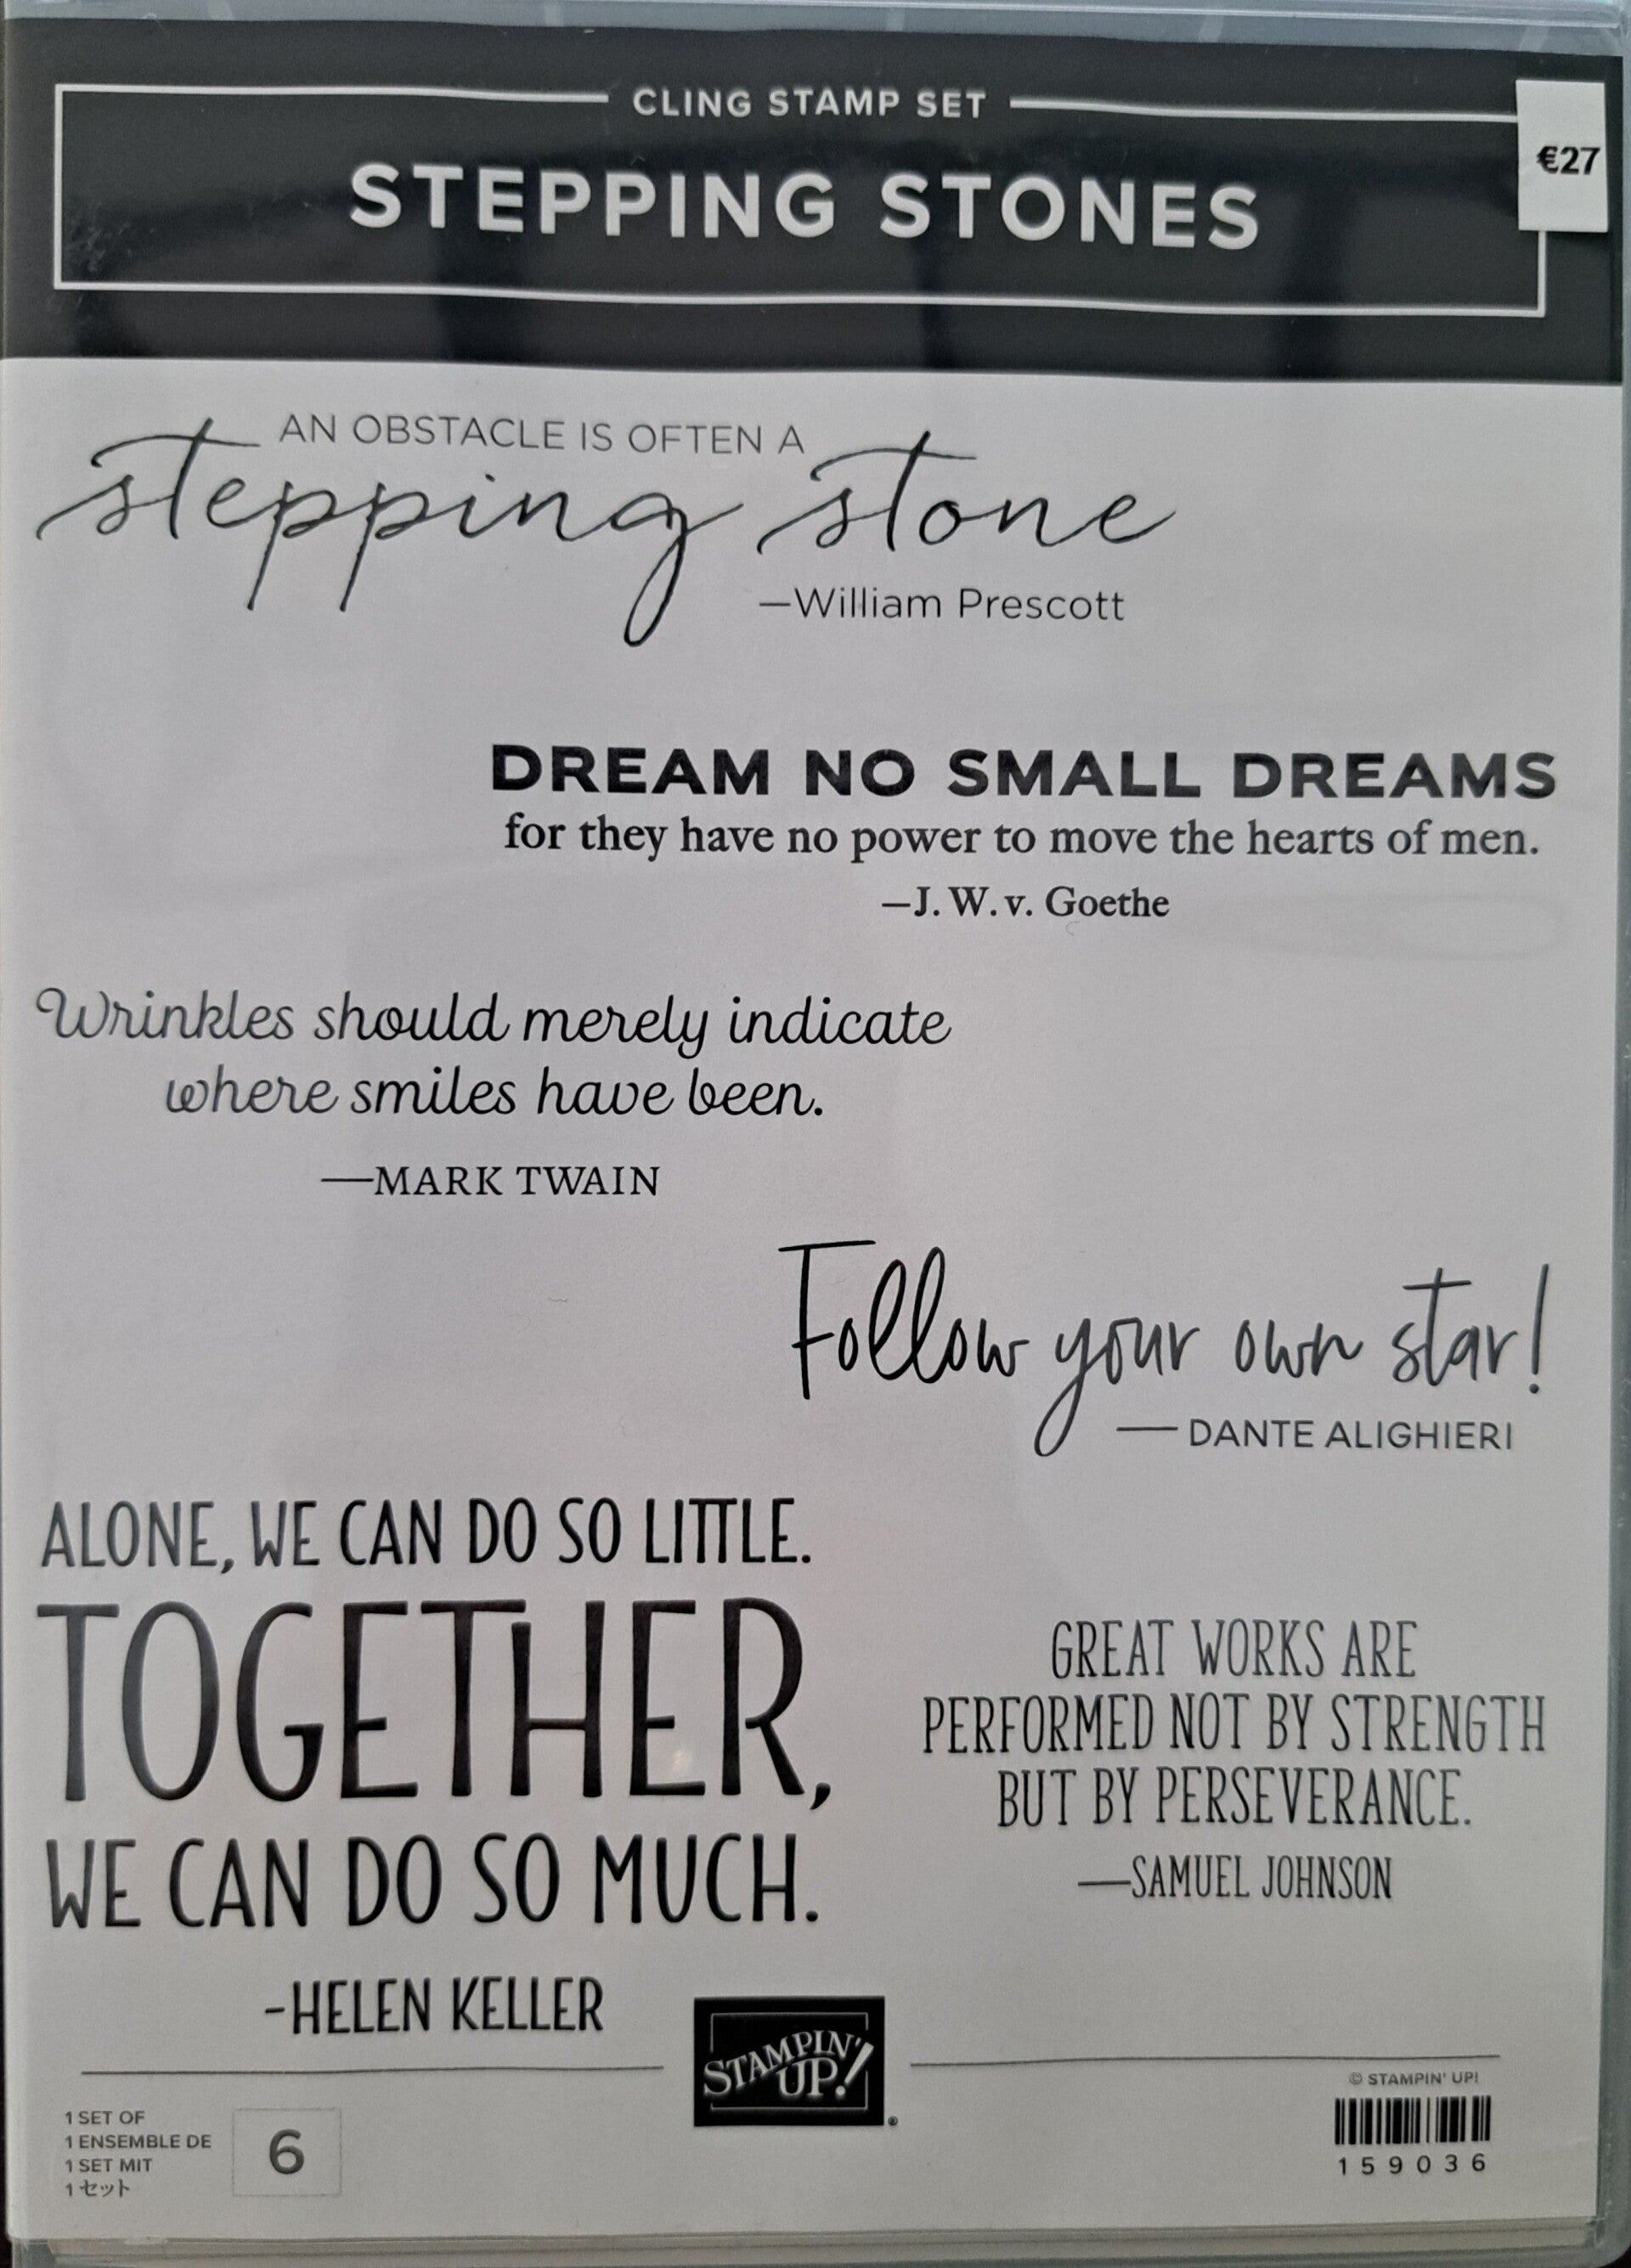 CLING STAMP SET
STEPPING STONES
€27
AN OBSTACLE IS OFTEN A
stepping stone
—William Prescott
DREAM NO SMALL DREAMS
for they have no power to move the hearts of men.
—J. W. v. Goethe
Wrinkles should merely indicate
where smiles have been.
—MARK TWAIN
Follow your own star!
— DANTE ALIGHIERI
ALONE, WE CAN DO SO LITTLE.
TOGETHER,
WE CAN DO SO MUCH.
-HELEN KELLER
GREAT WORKS ARE
PERFORMED NOT BY STRENGTH
BUT BY PERSEVERANCE.
—SAMUEL JOHNSON
STAMPIN'
UP!
®
1 SET OF
1 ENSEMBLE DE
1 SET MIT
1 セット
6
© STAMPIN' UP!
159036